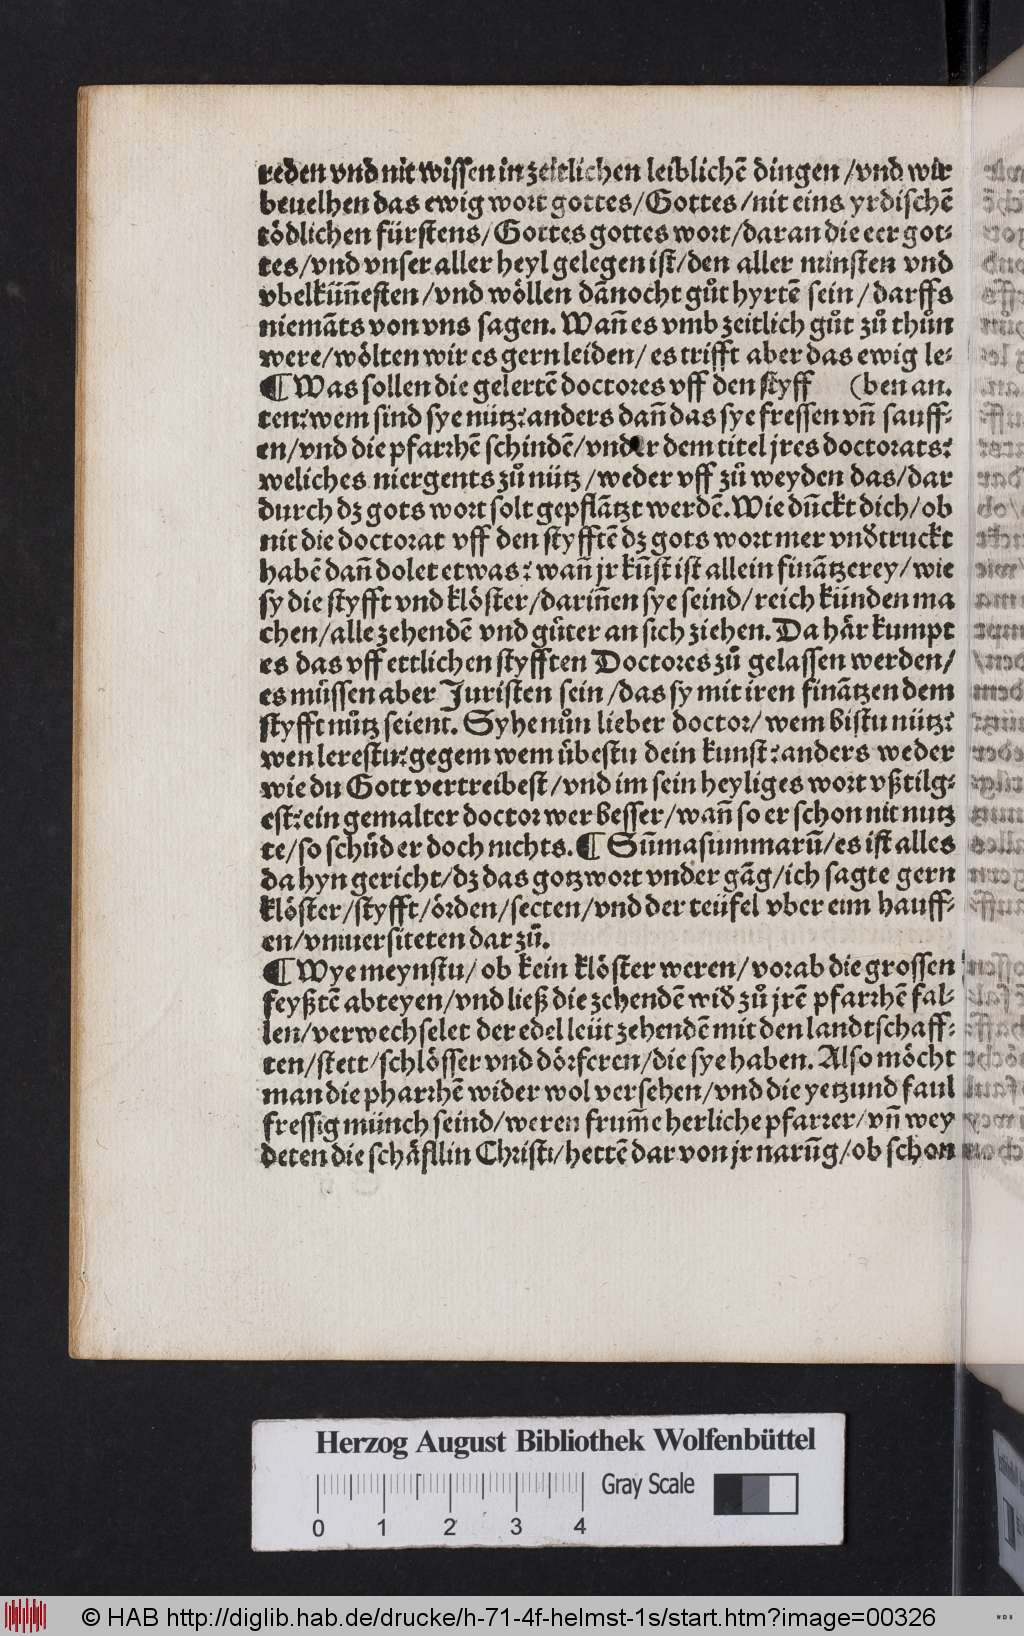 reden vnd nit wissen in zeitlichen leiblichē dingen /vnd wir
beuelhen das ewig wort gottes/Gottes/nit eins yrdischē
tödlichen fürstens/Gottes gottes wort/daran die eer got⸗
tes/vnd vnser aller heyl gelegen ist/den aller minsten vnd
vbelkün̄esten/vnd wöllen dānocht gůt hyrtē sein/darffs
niemāts von vns sagen. Wan̄ es vmb zeitlich gůt zů thůn
were/wölten wir es gern leiden/es trifft aber das ewig le⸗
¶ Was sollen die gelertē doctores vff den styff (ben an.
ten? wem sind sye nütz? anders dan̄ das sye fressen vn̄ sauff⸗
en/vnd die pfarrhē schindē/vnder dem titel jres doctorats?
weliches niergents zů nütz/weder vff zů weyden das/dar
durch dz gots wort solt gepflātzt werdē. Wie dūckt dich/ob
nit die doctorat vff den styfftē dz gots wort mer vnđtruckt
habē dan̄ dolet etwas? wan̄ jr kūst ist allein finātzerey/wie
sy die styfft vnd klöster/darin̄en sye seind/reich künden ma
chen/alle zehendē vnd güter an sich ziehen. Da här kumpt
es das vff ettlichen styfften Doctores zů gelassen werden/
es müssen aber Juristen sein/das sy mit iren finātzen dem
styfft nütz seient. Syhe nůn lieber doctor/wem bistu nütz?
wen lerestu? gegem wem übestu dein kunst? anders weder
wie du Gott vertreibest/vnd im sein heyliges wort vßtilg⸗
est? ein gemalter doctor wer besser/wan̄ so er schon nit nutz
te/so schůd er doch nichts. ¶ Sūmasummarū/es ist alles
da hyn gericht/dz das gotzwort vnder gāg/ich sagte gern
klöster/styfft/örden/secten/vnd der teüfel vber eim hauff⸗
en/vniuersiteten dar zů.
¶ Wye meynstu/ob kein klöster weren/vorab die grossen
feyßtē abteyen/vnd ließ die zehendē wiđ zů jrē pfarrhē fal⸗
len/verwechselet der edel leüt zehendē mit den landtschaff⸗
ten/stett/schlösser vnd dörferen/die sye haben. Also möcht
man die pharrhē wider wol versehen/vnd die yetzund faul
fressig münch seind/weren frum̄e herliche pfarrer/vn̄ wey
deten die schäfllin Christi/hettē dar von jr narūg/ob schon
Herzog August Bibliothek Wolfenbüttel
Gray Scale
0 1 2 3 4
© HAB http://diglib.hab.de/drucke/h-71-4f-helmst-1s/start.htm?image=00326